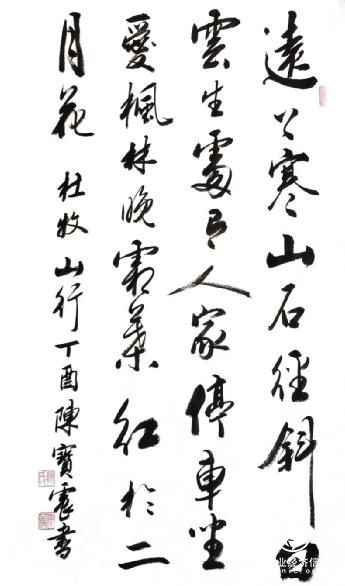 遠上寒山石徑斜白
雲生處有人家停車坐
愛楓林晚霜葉紅於二
月花 杜牧 山行 丁酉 陳寶震書